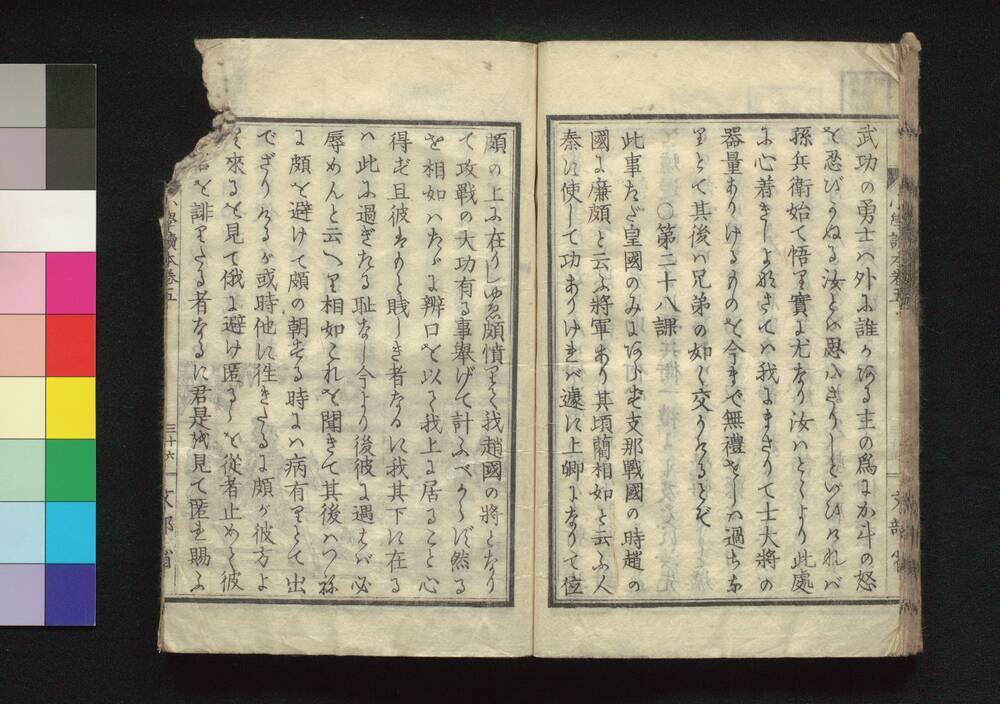 武功の勇士ハ外に誰かある主の爲にか斗の怒
を忍びかぬる汝とハ思ハざりしといひけれバ
孫兵衛始て悟り實に尤なり汝ハとくより此處
に心着きしよな
器量ありけるものを今まで無禮をしハ過ちな
りとて其後ハ兄弟の如く交りけるとぞ
○第二十八課
此事たゞ皇國のみにあらず支那戰國の時趙の
國に廉頗と云ふ將軍あり其頃藺相如と云ふ人
秦に使して功ありけれバ遽に上卿になりて位
頗の上に在りしゆゑ頗憤りて我趙國の將となり
て攻戰の大功有る事擧げて計ふべからず然る
を相如ハたゞに辨口を以て我上に居ること心
得ず且彼ハもと賤しき者なるに我其下に在る
ハ此に過ぎたる耻なし今より後彼に遇はゞ必
辱めんと云へり相如これを聞きて其後ハつね
に頗を避けて頗の朝する時にハ病有りとて出
でざりけるが或時他に往きたるに頗が彼方よ
り來るを見て俄に避け匿るゝを從者止めて彼
君を誹りたる者なるに君是を見て匿れ賜ふ
小學讀本卷五
三十六
文部省
小學讀本卷五
文部省